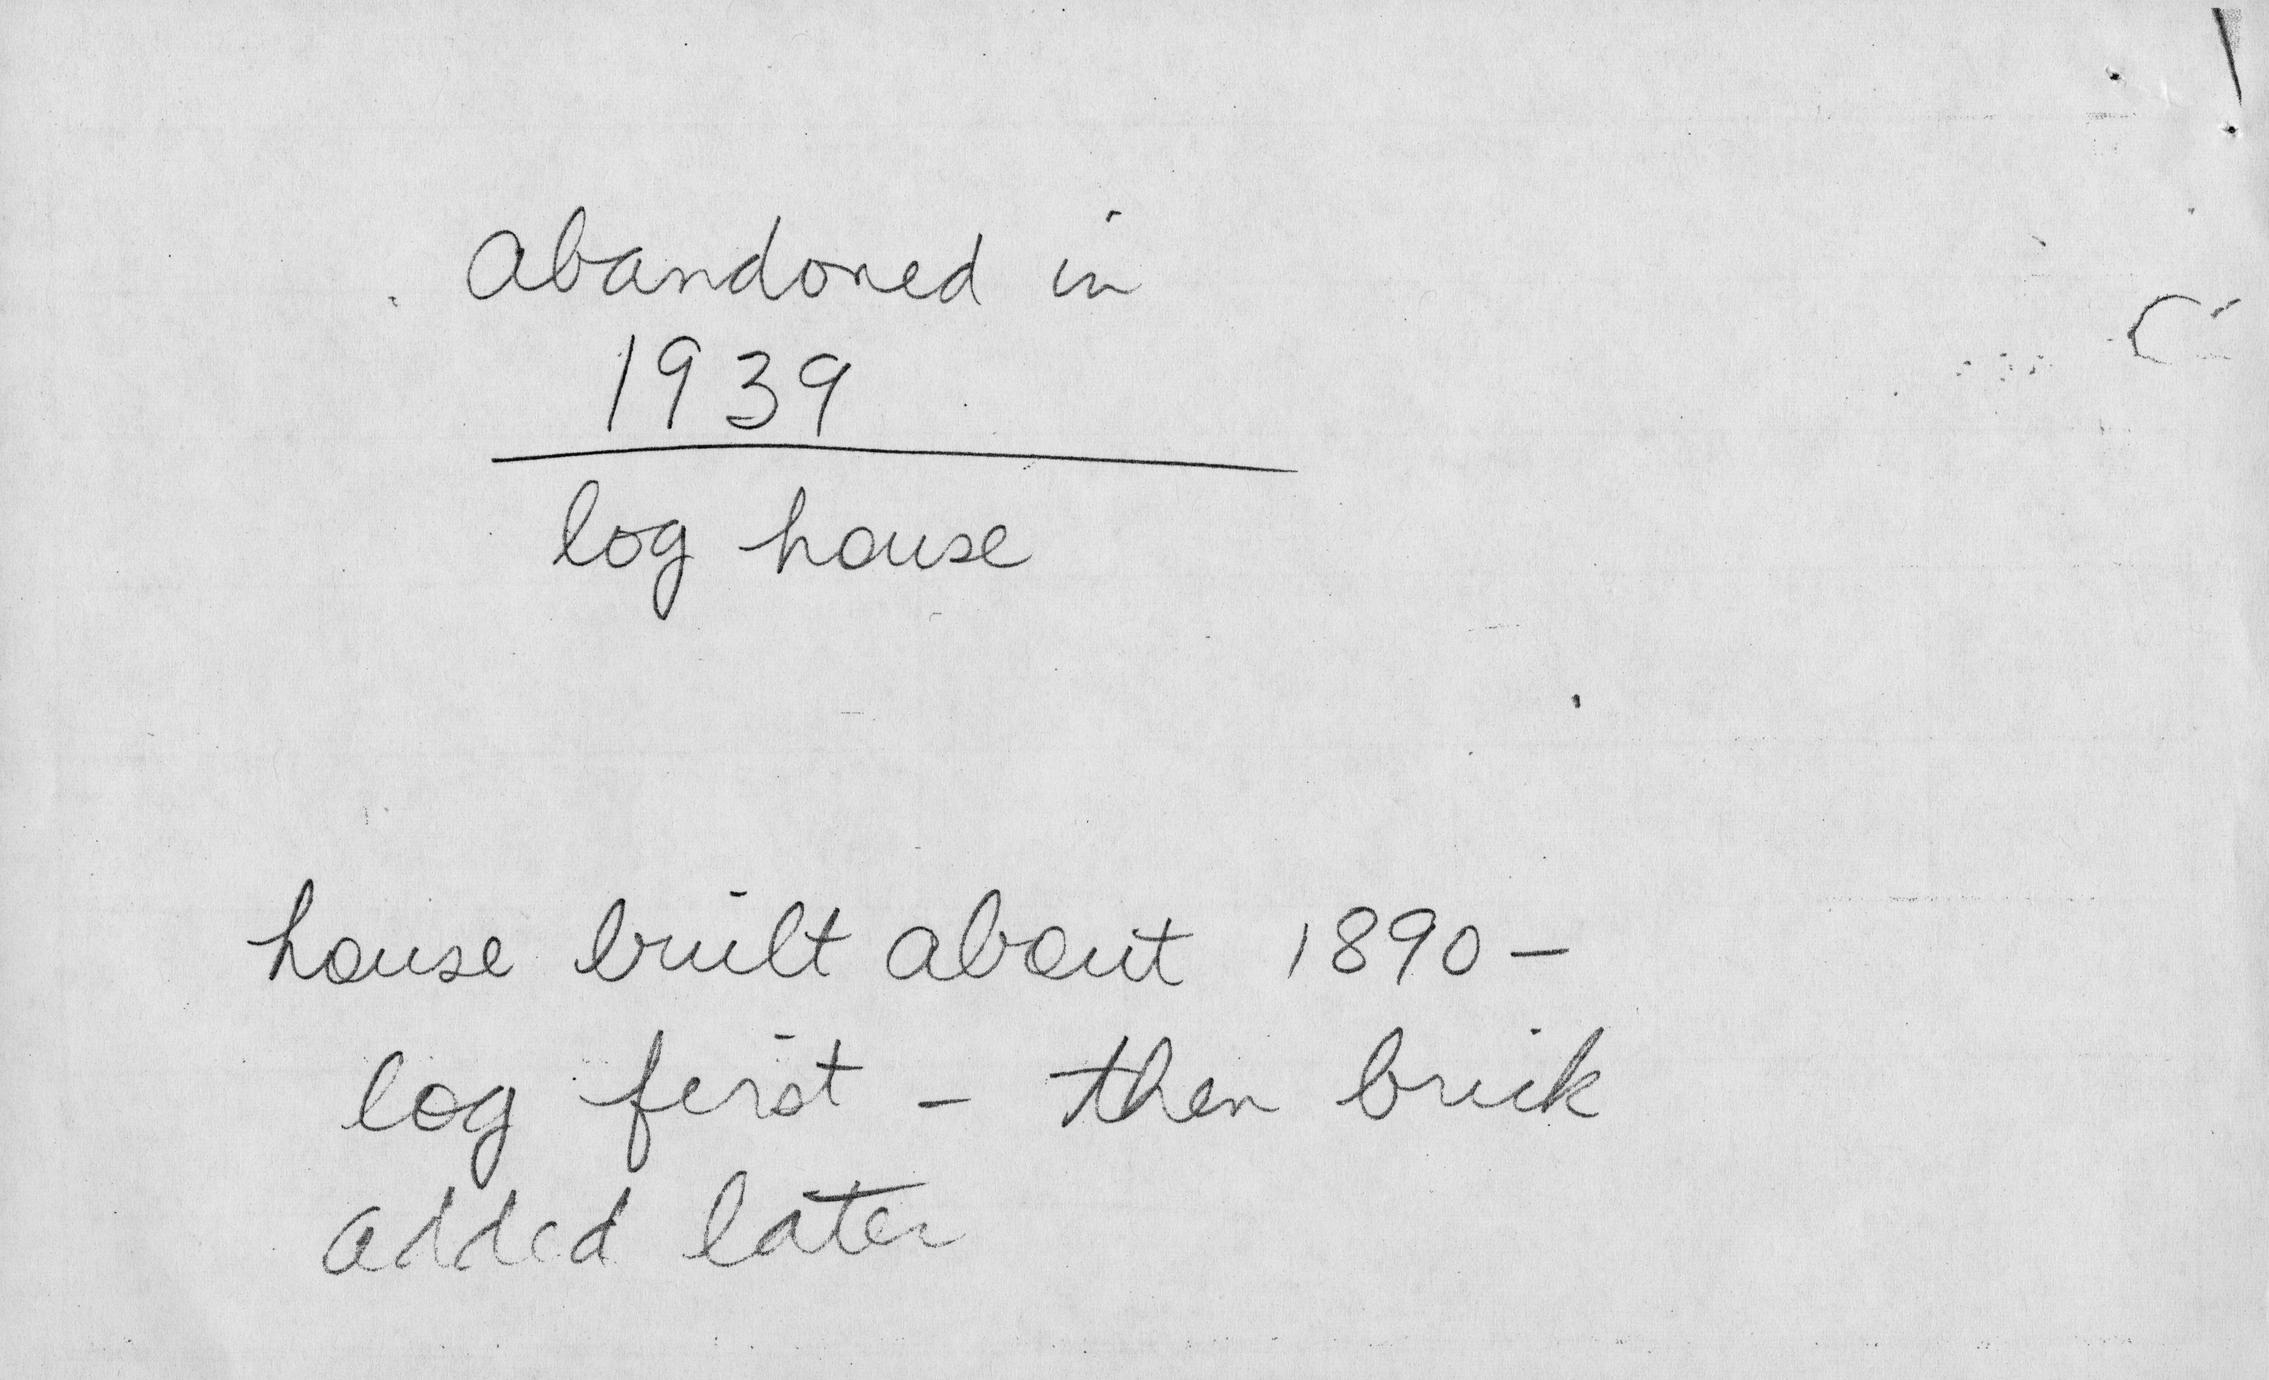 abandoned in
1939
log house
house built about 1890 –
log first – then brick
added later